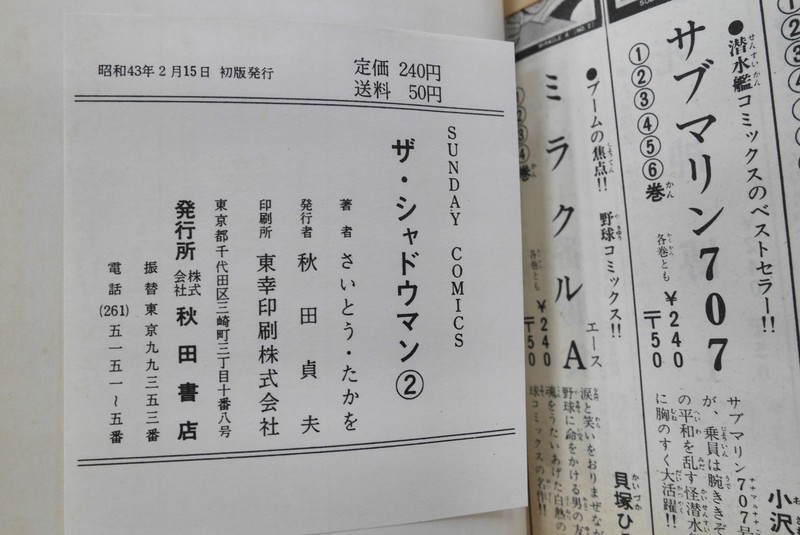 昭和43年2月15日 初版発行
定価 240円
送料 50円
SUNDAY COMICS
ザ・シャドウマン②
著者 さいとう・たかを
発行者 秋田貞夫
印刷所 東幸印刷株式会社
東京都千代田区三崎町三丁目十番八号
発行所 株式会社 秋田書店
振替東京九九三五三番
電話(261)五一五一〜五番
●潜水艦コミックスのベストセラー!!
サブマリン707
①②③④⑤⑥巻
各巻とも
¥240
〒50
サブマリン707号
が、乗員は腕ききぞ
の平和を乱す怪潜水
に胸のすく大活躍!!
小沢
●ブームの焦点!! 野球コミックス!!
ミラクルA
エース
各巻とも
¥240
〒50
涙と笑いをおりまぜなが
野球に命をかける男の友
魂をうたいあげた白熱の
球コミックスの名作!!
貝塚ひ